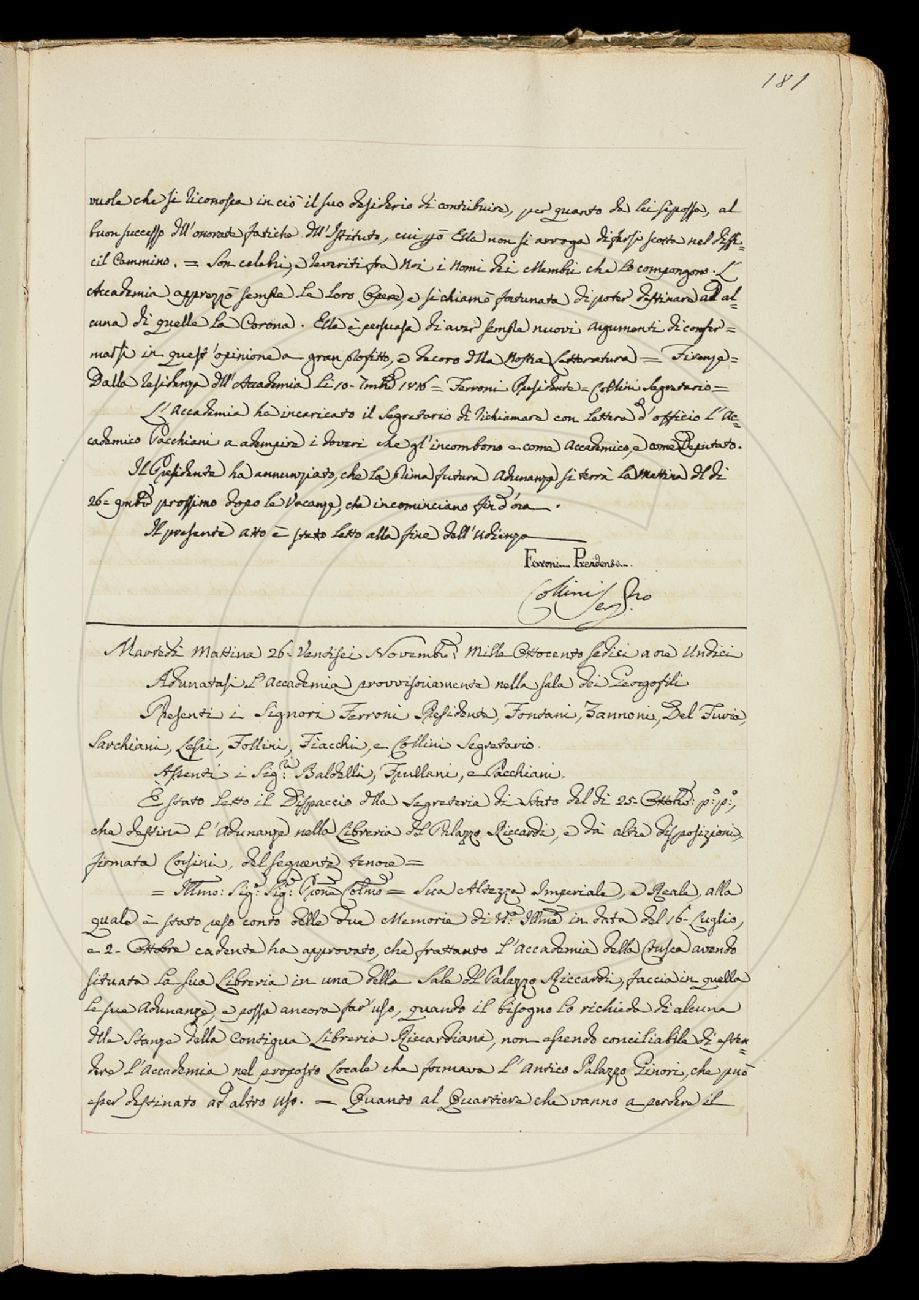 181
vuole che si riconosca in ciò il suo desiderio di contribuire, per quanto da lei si possa, al
buon successo dell'onorate fatiche dell'Istituto, cui però Ella non si arroga di farsi scorta nel diffi=
cil Cammino. = Son celebri, e reveriti fra Noi i Nomi dei Membri che lo compongono. L'
Accademia apprezzò sempre le loro Opere, e si chiamò fortunata di poter destinare ad al=
cuna di quelle la Corona. Ella è persuasa di aver sempre nuovi argumenti di confer=
marsi in quest'opinione a gran profitto, e decoro della Nostra Letteratura = Firenze =
Dalla Residenza dell'Accademia Li 10. 7mbre 1816 = Ferroni Presidente = Collini Segretario =
L'Accademia ha incaricato il Segretario di richiamare con lettera d'officio l'Ac=
cademico Pacchiani a adempire i doveri che gl'incombono e come Accademico, e come Deputato.
Il Presidente ha annunziato, che la prima futura Adunanza si terrà la mattina del dì
26. 9mbre prossimo dopo le Vacanze, che incominciano fin d'ora.
Il presente atto è stato letto alla fine dell'Udienza
Ferroni Presidente
Collini Segrio
Martedì Mattina 26. Ventisei Novembre Mille Ottocento sedici a ore Undici
Adunatasi l'Accademia provvisoriamente nella sala dei Georgofili
Presenti i Signori Ferroni Presidente, Fontani, Zannoni, Del Furia,
Sarchiani, Lessi, Follini, Fiacchi, e Collini Segretario.
Assenti i Sigri Baldelli, Frullani, e Pacchiani.
È stato letto il Dispaccio della Segreteria di Stato del dì 25. Ottobre p.o p.o,
che destina l'Adunanze nella Libreria del Palazzo Riccardi, e dà altre disposizioni,
firmata Corsini, del seguente tenore =
= Illmo: Sig.r Sig.r Prone Colmo = Sua Altezza Imperiale, e Reale, alla
quale è stato reso conto delle due Memorie di VS. Illma in data del 16. Luglio,
e 2. Ottobre cadente ha approvato, che frattanto l'Accademia della Crusca avendo
situata la sua Libreria in una delle Sale del Palazzo Riccardi, faccia in quella
le sue Adunanze, e possa ancora far uso, quando il bisogno lo richieda di alcuna
delle Stanze della Contigua Libreria Riccardiana, non essendo conciliabile di esten=
dere l'Accademia nel proposto Locale che formava l'Antico Palazzo Ginori, che può
esser destinato ad altro uso. = Quanto al Quartiere che vanno a perdere il